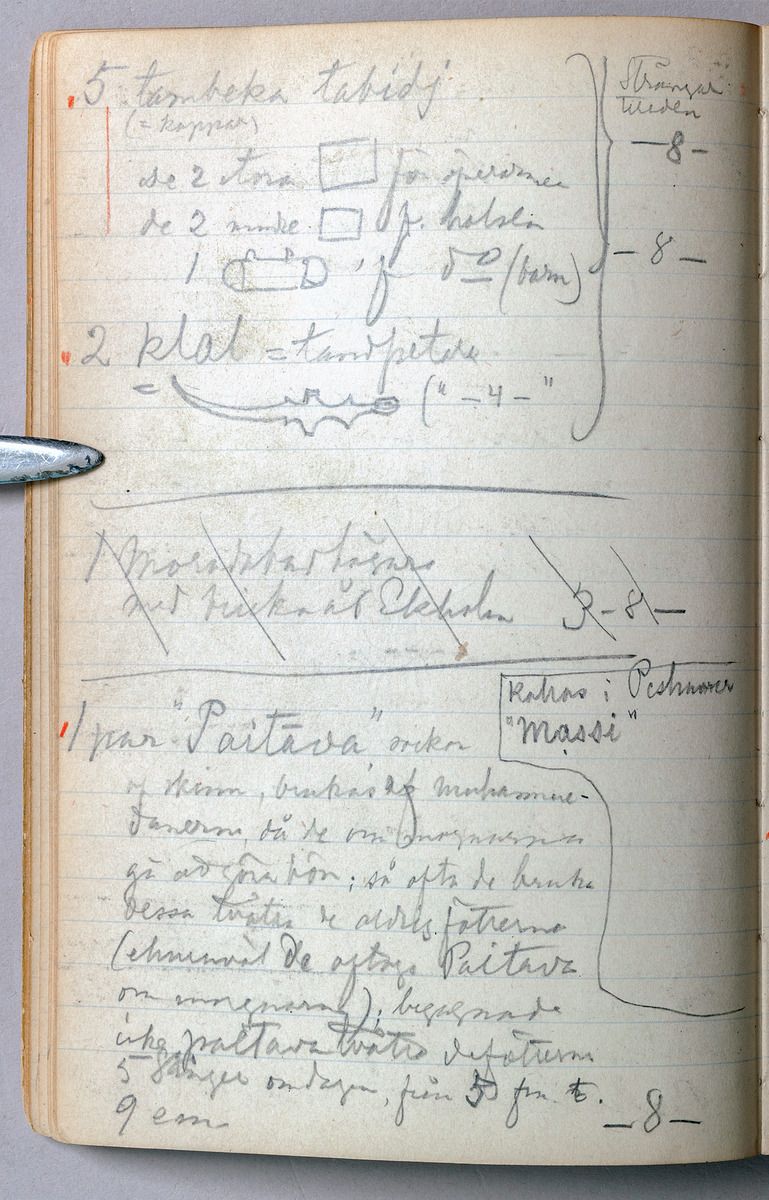 5 tambeka tabidj
(= koppar)
Strängar
de 2 stora för
— 8 —
de 2 mindre f. halsen
1 f d:o (barn)
— 8 —
2 klal = tandpetare
= (" — 4 — "
1 Moradabad
med Ekholm 3 — 8 —
kallas i Peshawer
"Massi"
1 par "Paitava" sockor
af skinn, brukas af Muhamme-
danerna, då de om morgnarna
gå att göra bön; så ofta de bruka
dessa tvätta de aldrig fötterna
(ehuruväl de aftaga Paitava
om morgnarna); begagnade
icke paitava tvätta de fötterna
5 gånger om dagen, från 5 fm. t.
9 em.
— 8 —